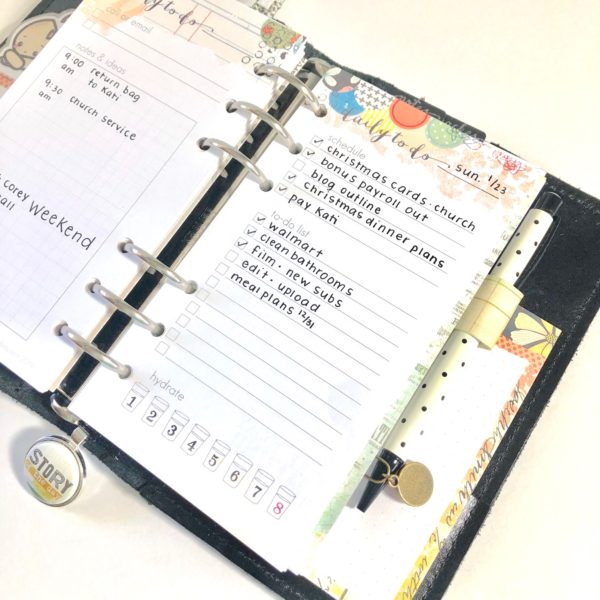 daily to do
call or email
notes & ideas
9:00 am return bag to Kati
9:30 am church service
corey
weekend
daily to do
sun. 1/23
schedule
christmas cards - church
bonus payroll out
blog outline
christmas dinner plans
pay Kati
to-do list
walmart
clean bathrooms
film - new subs
edit - upload
meal plans 12/31
hydrate
1 2 3 4 5 6 7 8
STORY